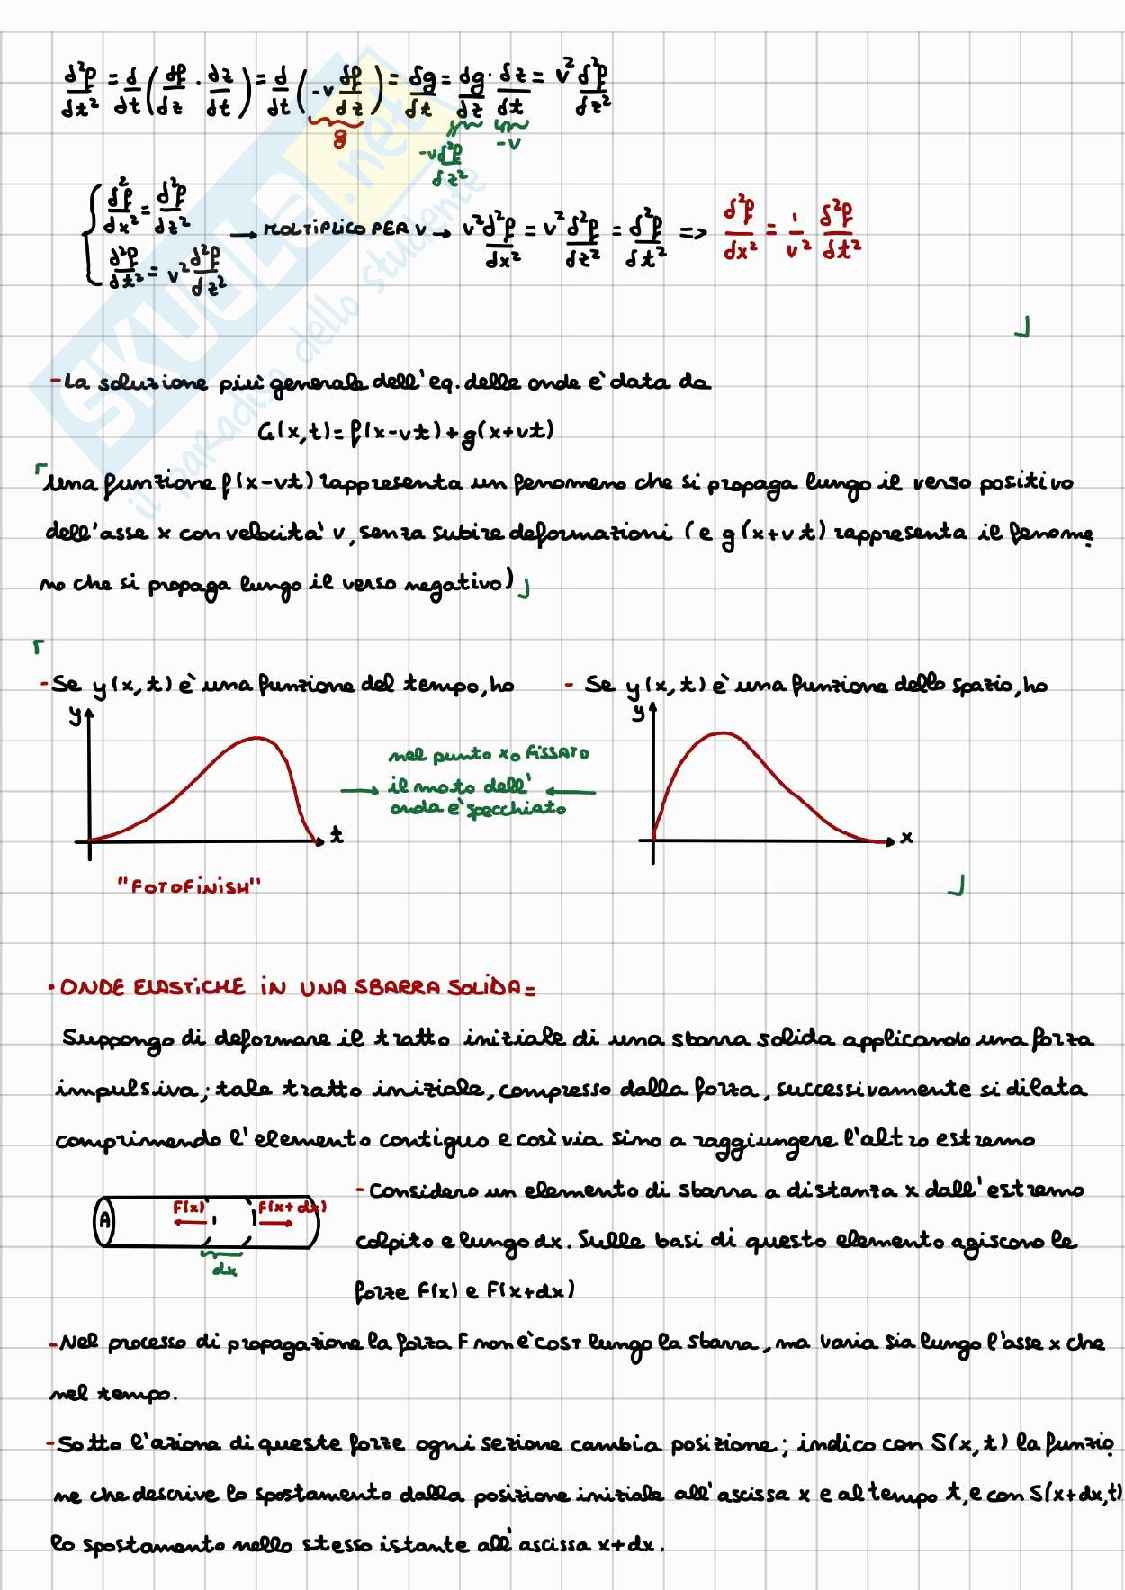 d²f/dt² = d/dt (df/dz · dz/dt) = d/dt (-v df/dz) = dg/dt = dg/dz · dz/dt = v² d²f/dz²
g
-v d²f/dz²
-v
{ d²f/dx² = d²f/dz²
d²f/dt² = v² d²f/dz²
→ MOLTIPLICO PER v → v² d²f/dx² = v² d²f/dz² = d²f/dt² => d²f/dx² = 1/v² d²f/dt²
SKUOLA.net
il paradiso dello studente
- La soluzione più generale dell'eq. delle onde è data da
G(x,t) = f(x-vt) + g(x+vt)
Una funzione f(x-vt) rappresenta un fenomeno che si propaga lungo il verso positivo
dell'asse x con velocità v, senza subire deformazioni (e g(x+vt) rappresenta il fenome
no che si propaga lungo il verso negativo)
- Se y(x,t) è una funzione del tempo, ho
- Se y(x,t) è una funzione dello spazio, ho
y
t
nel punto x₀ fissato
→ il moto dell' ←
onda è specchiato
y
x
"FOTOFINISH"
· ONDE ELASTICHE IN UNA SBARRA SOLIDA =
Suppongo di deformare il tratto iniziale di una sbarra solida applicando una forza
impulsiva; tale tratto iniziale, compresso dalla forza, successivamente si dilata
comprimendo l'elemento contiguo e così via sino a raggiungere l'altro estremo
A F(x) F(x+dx)
dx
- Considero un elemento di sbarra a distanza x dall'estremo
colpito e lungo dx. Sulle basi di questo elemento agiscono le
forze F(x) e F(x+dx)
- Nel processo di propagazione la forza F non è cost lungo la sbarra, ma varia sia lungo l'asse x che
nel tempo.
- Sotto l'azione di queste forze ogni sezione cambia posizione; indico con S(x,t) la funzio
ne che descrive lo spostamento dalla posizione iniziale all'ascissa x e al tempo t, e con S(x+dx,t)
lo spostamento nello stesso istante all'ascissa x+dx.